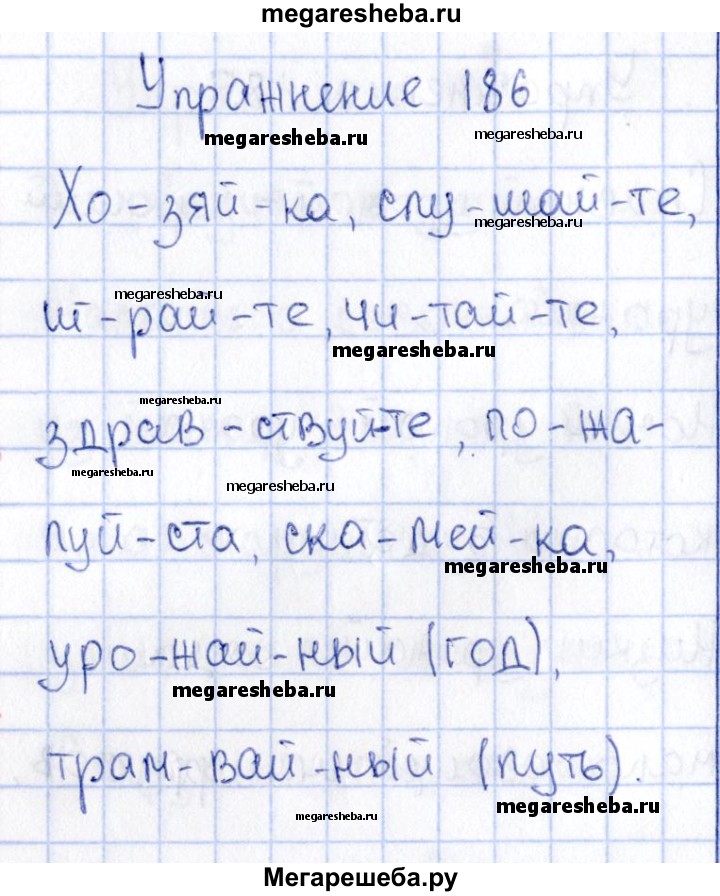 megaresheba.ru
Упражнение 186
megaresheba.ru
megaresheba.ru
Хо-зяй-ка, слу-шай-те,
megaresheba.ru
megaresheba.ru
иг-рай-те, чи-тай-те,
megaresheba.ru
megaresheba.ru
здрав-ствуй-те, по-жа-
megaresheba.ru
megaresheba.ru
луй-ста, ска-мей-ка,
megaresheba.ru
уро-жай-ный (год),
megaresheba.ru
трам-вай-ный (путь).
megaresheba.ru
megaresheba.ru
Мегарешеба.ру